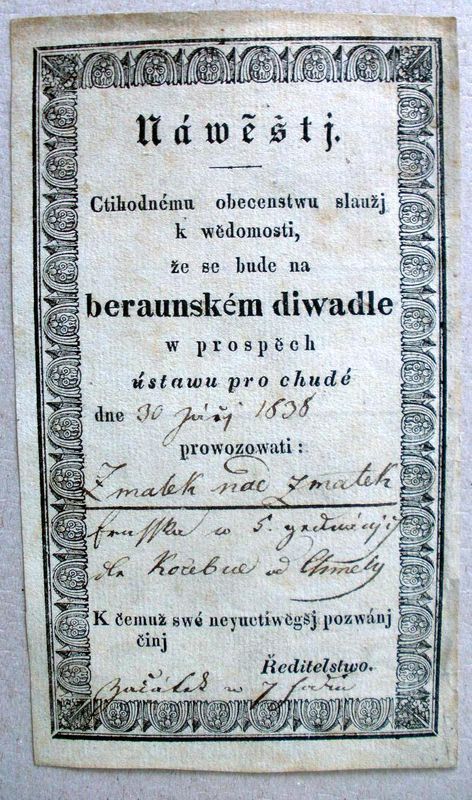 Náwěštj.
Ctihodnému obecenstwu slaužj
k wědomosti,
že se bude na
beraunském diwadle
w prospěch
ústawu pro chudé
dne 30 Zářj 1838
prowozowati:
Zmatek nad zmatek
fraška w 5 gednánjch
dle Kocebue od Chmely
K čemuž swé neyuctiwěgšj pozwánj
činj
Ředitelstwo.
Začátek w 7 hodin